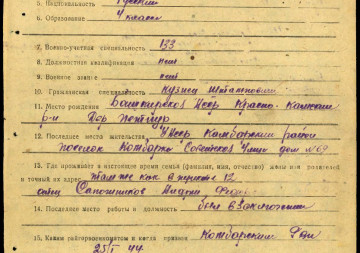 5. Национальность Русский
6. Образование 4 класса
7. Военно-учетная специальность 133
8. Должностная квалификация нет
9. Военное звание нет
10. Гражданская специальность кузнец
11. Место рождения Башкирская
р-н дер
12. Последнее место жительства Камбарский район
поселок Камбарка Советская улица дом №69
13. Где проживает в настоящее время семья (фамилия, имя, отчество) жены или родителей
и точный их адрес там же как в пункте 12
отец Сапожников
14. Последнее место работы и должность был в заключении
15. Каким райгорвоенкоматом и когда призван Камбарским РВК
25/I 44